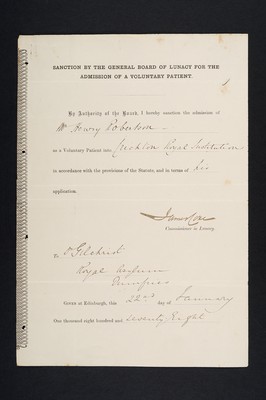 SANCTION BY THE GENERAL BOARD OF LUNACY FOR THE
ADMISSION OF A VOLUNTARY PATIENT.
By Authority of the Board, I hereby sanction the admission of
Mr Henry Robertson
as a Voluntary Patient into Crichton Royal Institution
in accordance with the provisions of the Statute, and in terms of his
application.
James Coxe
Commissioner in Lunacy.
To Dr Gilchrist
Royal Asylum
Dumfries
Given at Edinburgh, this 22nd day of January
One thousand eight hundred and seventy Eight